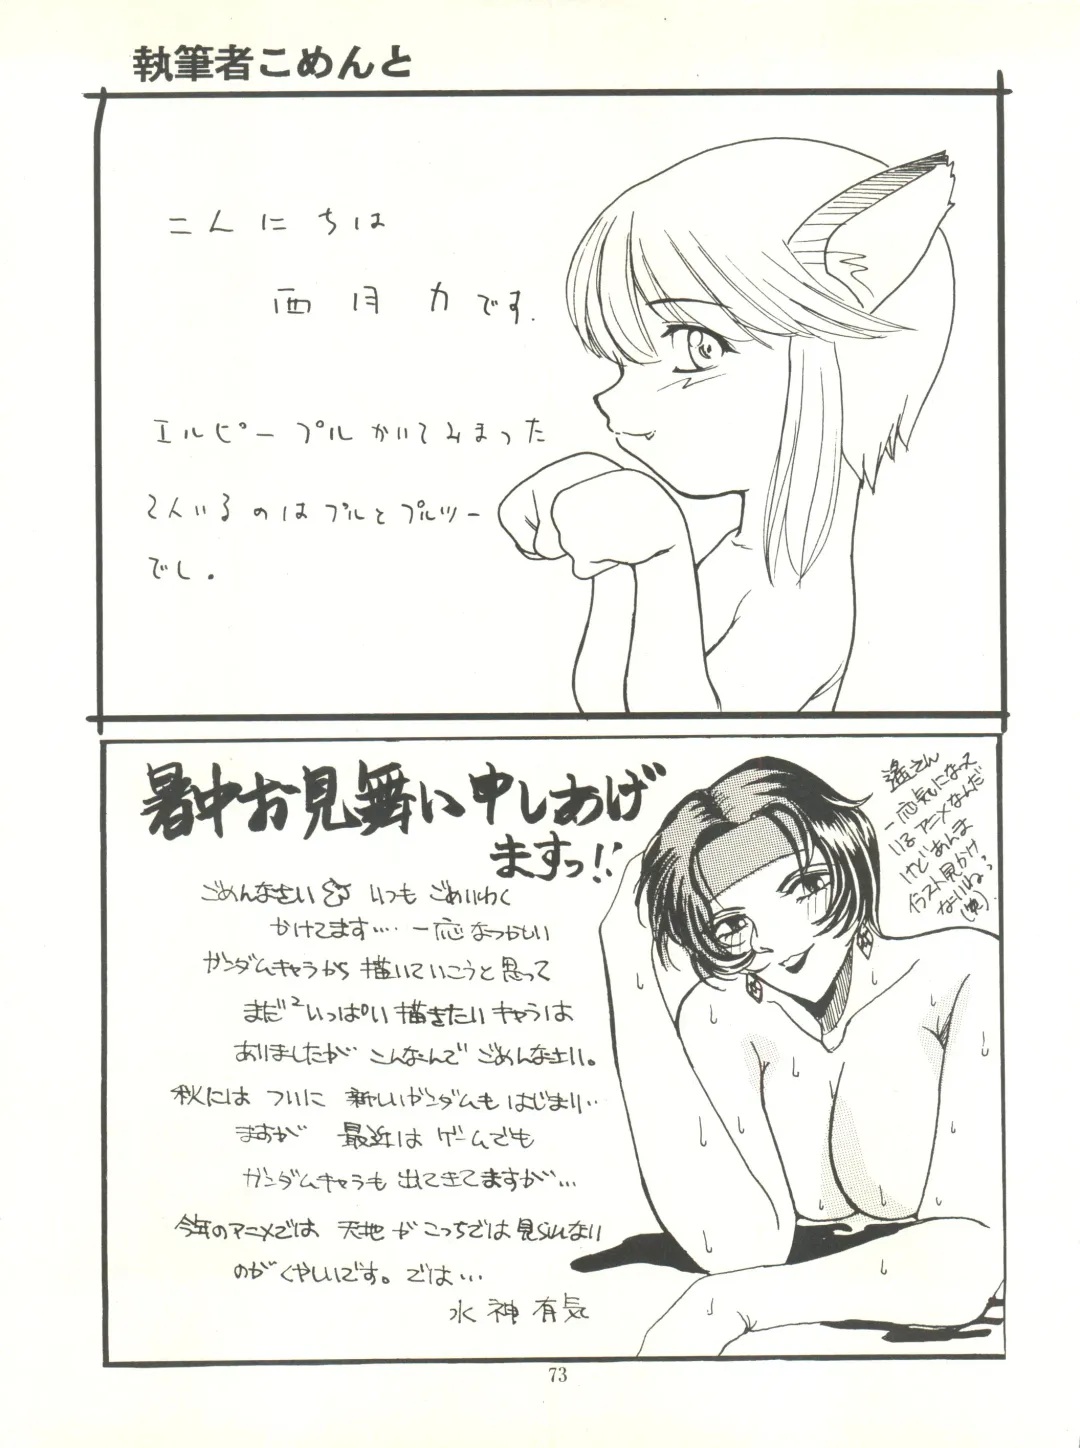 執筆者こめんと
こんにちは
西月力です.
エルピープルかいてみまった
てんいるのはプルとプルツー
でし。
暑中お見舞い申しあげ
ますっ!!
ごめんなさい いつも ごめいわく
かけてます… 一応なつかしい
ガンダムキャラから 描いていこうと思って
まだ²いっぱい 描きたいキャラは
ありましたが こんなんで ごめんなさい。
秋には ついに 新しいガンダムも はじまり‥
ますが 最近は ゲームでも
ガンダムキャラも 出てきてますが…
今年のアニメでは 天地が こっちでは見られない
のが くやしいです。 では…
水神有気
遙さん
一応気になって
いるアニメなんだ
けど あんま
イラスト見かけ
ないね。
73